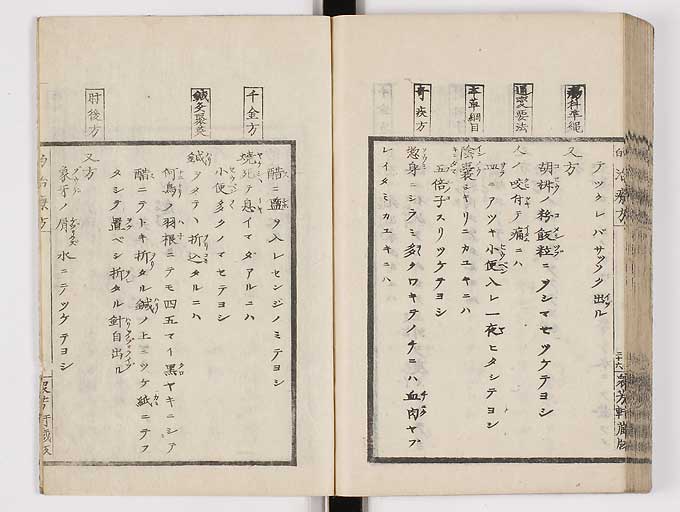 テツケレバサツソク出ル
瘍科準繩
又方
胡桃ノ粉飯粒ニヲシマセツケテヨシ
通変要法
人ノ咬付テ痛ニハ
皿ニアツキ小便入レ一夜ヒタシテヨシ
本草綱目
陰嚢シキリニカユキニハ
五倍子スリツケテヨシ
奇疾方
惣身ニシラミ多クワキテノチニハ血肉ヤブ
レイタミカユキニハ
醋ニ鹽ヲ入レセンジノミテヨシ
千金方
焼死テ息イマダアルニハ
小便多クノマセテヨシ
鍼灸聚英
鍼ヲタテヽ折込タルニハ
何鳥ノ羽根ニテモ四五マイ黒ヤキニシテ
醋ニテトキ折タル鍼ノ上ニツケ紙ニテフ
タシテ置ベシ折タル針自出ル
肘後方
又方
象牙ノ屑水ニテツケテヨシ